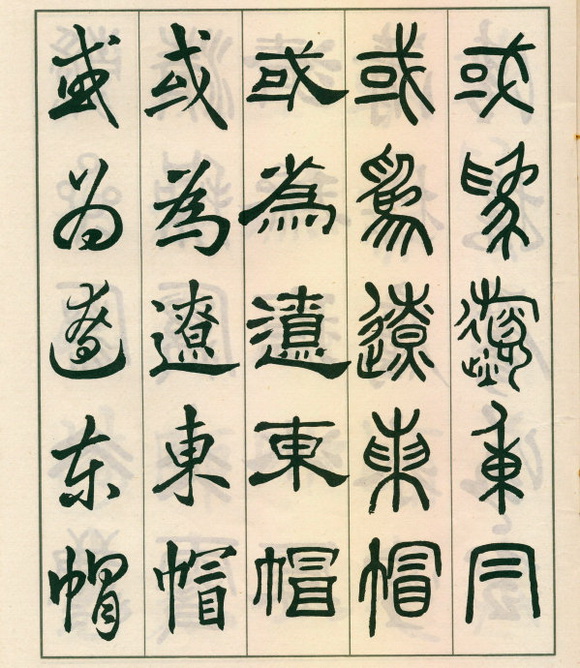 或為遼東冃
或為遼東帽
或為遼東帽
或為遼東帽
或為遼東帽